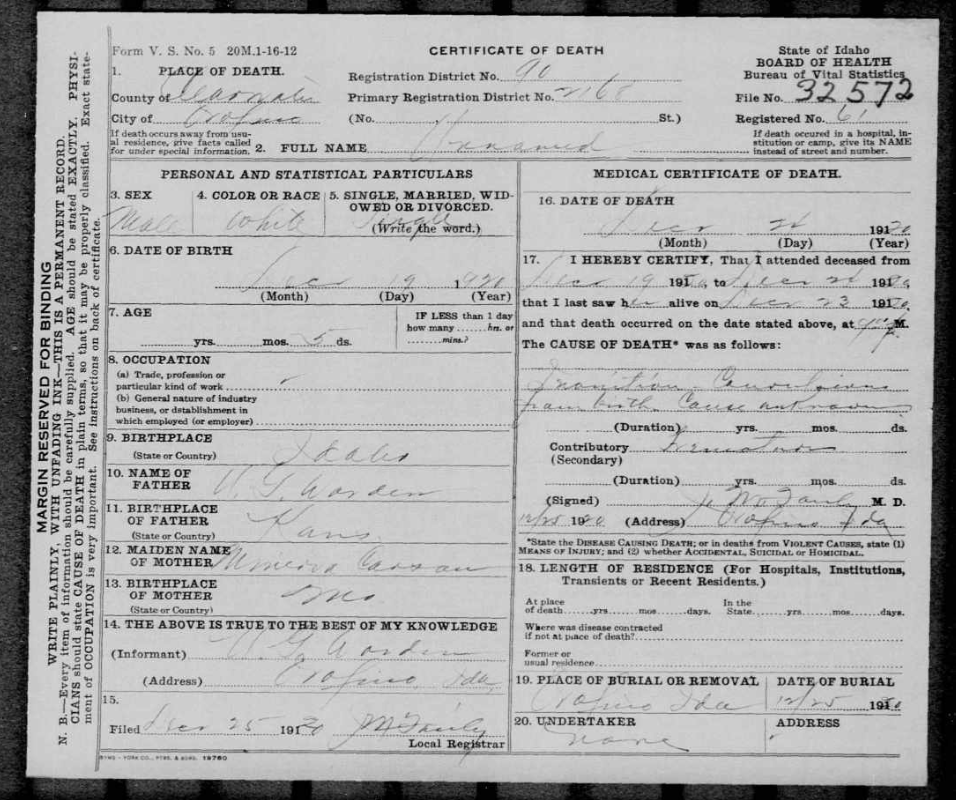 MARGIN RESERVED FOR BINDING
WRITE PLAINLY, WITH UNFADING INK—THIS IS A PERMANENT RECORD.
N. B.—Every item of information should be carefully supplied. AGE should be stated EXACTLY. PHYSI-
CIANS should state CAUSE OF DEATH in plain terms, so that it may be properly classified. Exact state-
ment of OCCUPATION is very important. See instructions on back of certificate.
Form V. S. No. 5 20M.1-16-12
CERTIFICATE OF DEATH
State of Idaho
BOARD OF HEALTH
Bureau of Vital Statistics
File No. 32572
Registered No. 61
1. PLACE OF DEATH.
County of
City of Orofino
Registration District No. 90
Primary Registration District No. 2168
(No. St.)
If death occurs away from usu-
al residence, give facts called
for under special information.
2. FULL NAME Unnamed
If death occured in a hospital, in-
stitution or camp, give its NAME
instead of street and number.
PERSONAL AND STATISTICAL PARTICULARS
3. SEX
Male
4. COLOR OR RACE
White
5. SINGLE, MARRIED, WID-
OWED OR DIVORCED.
Single
(Write the word.)
6. DATE OF BIRTH
Dec 19 1920
(Month) (Day) (Year)
7. AGE
yrs. mos. 5 ds.
IF LESS than 1 day
how many ...... hrs. or
...... mins.?
8. OCCUPATION
(a) Trade, profession or
particular kind of work
(b) General nature of industry
business, or establishment in
which employed (or employer)
9. BIRTHPLACE
(State or Country) Idaho
10. NAME OF
FATHER W. G. Worden
11. BIRTHPLACE
OF FATHER
(State or Country) Kans.
12. MAIDEN NAME
OF MOTHER Minerva
13. BIRTHPLACE
OF MOTHER
(State or Country) Mo
14. THE ABOVE IS TRUE TO THE BEST OF MY KNOWLEDGE
(Informant) W. G. Worden
(Address) Orofino, Ida.
15.
Filed Dec 25 1920
Local Registrar
SYMS - YORK CO., PTRS. & BDRS. 19760
MEDICAL CERTIFICATE OF DEATH.
16. DATE OF DEATH
Dec 24 1920
(Month) (Day) (Year)
17. I HEREBY CERTIFY, That I attended deceased from
Dec 19 1920 to Dec 24 1920
that I last saw her alive on Dec 23 1920
and that death occurred on the date stated above, at M.
The CAUSE OF DEATH* was as follows:
Inanition - Convulsions
from birth. Cause unknown
(Duration) yrs. mos. ds.
Contributory
(Secondary)
(Duration) yrs. mos. ds.
(Signed) M. D.
12/25 1920 (Address) Orofino Ida
*State the DISEASE CAUSING DEATH; or in deaths from VIOLENT CAUSES, state (1)
MEANS OF INJURY; and (2) whether ACCIDENTAL, SUICIDAL or HOMICIDAL.
18. LENGTH OF RESIDENCE (For Hospitals, Institutions,
Transients or Recent Residents.)
At place
of death......yrs......mos......days.
In the
State......yrs......mos......days.
Where was disease contracted
if not at place of death?
Former or
usual residence
19. PLACE OF BURIAL OR REMOVAL
Orofino Ida
DATE OF BURIAL
12/25 1920
20. UNDERTAKER
none
ADDRESS